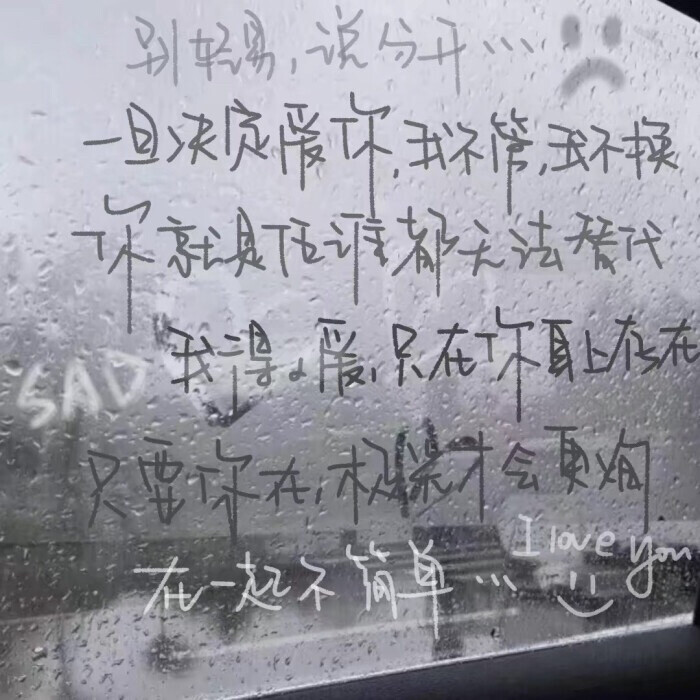 别轻易,说分开…
一旦决定爱你,我不管,我不换
你就是任谁都无法替代
我 爱,只在你身上存在
SAD
只要你在, 才会更
I love you
在一起不简单…